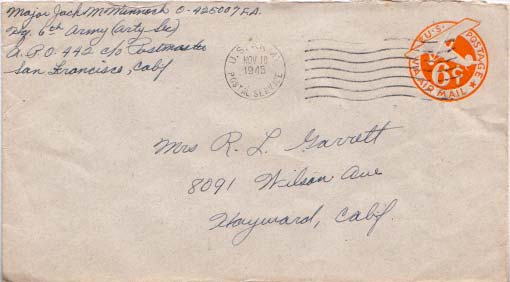 Major Jack McMinnoch O-425007 F.A.
Hq. 6th Army (Arty Sec)
A.P.O. 442 c/o Postmaster
San Francisco, Calif
U.S. ARMY
NOV 10
1945
POSTAL SERVICE
U.S. POSTAGE
6¢
VIA AIR MAIL
Mrs R. L. Garrett
8091 Wilson Ave
Hayward, Calif.